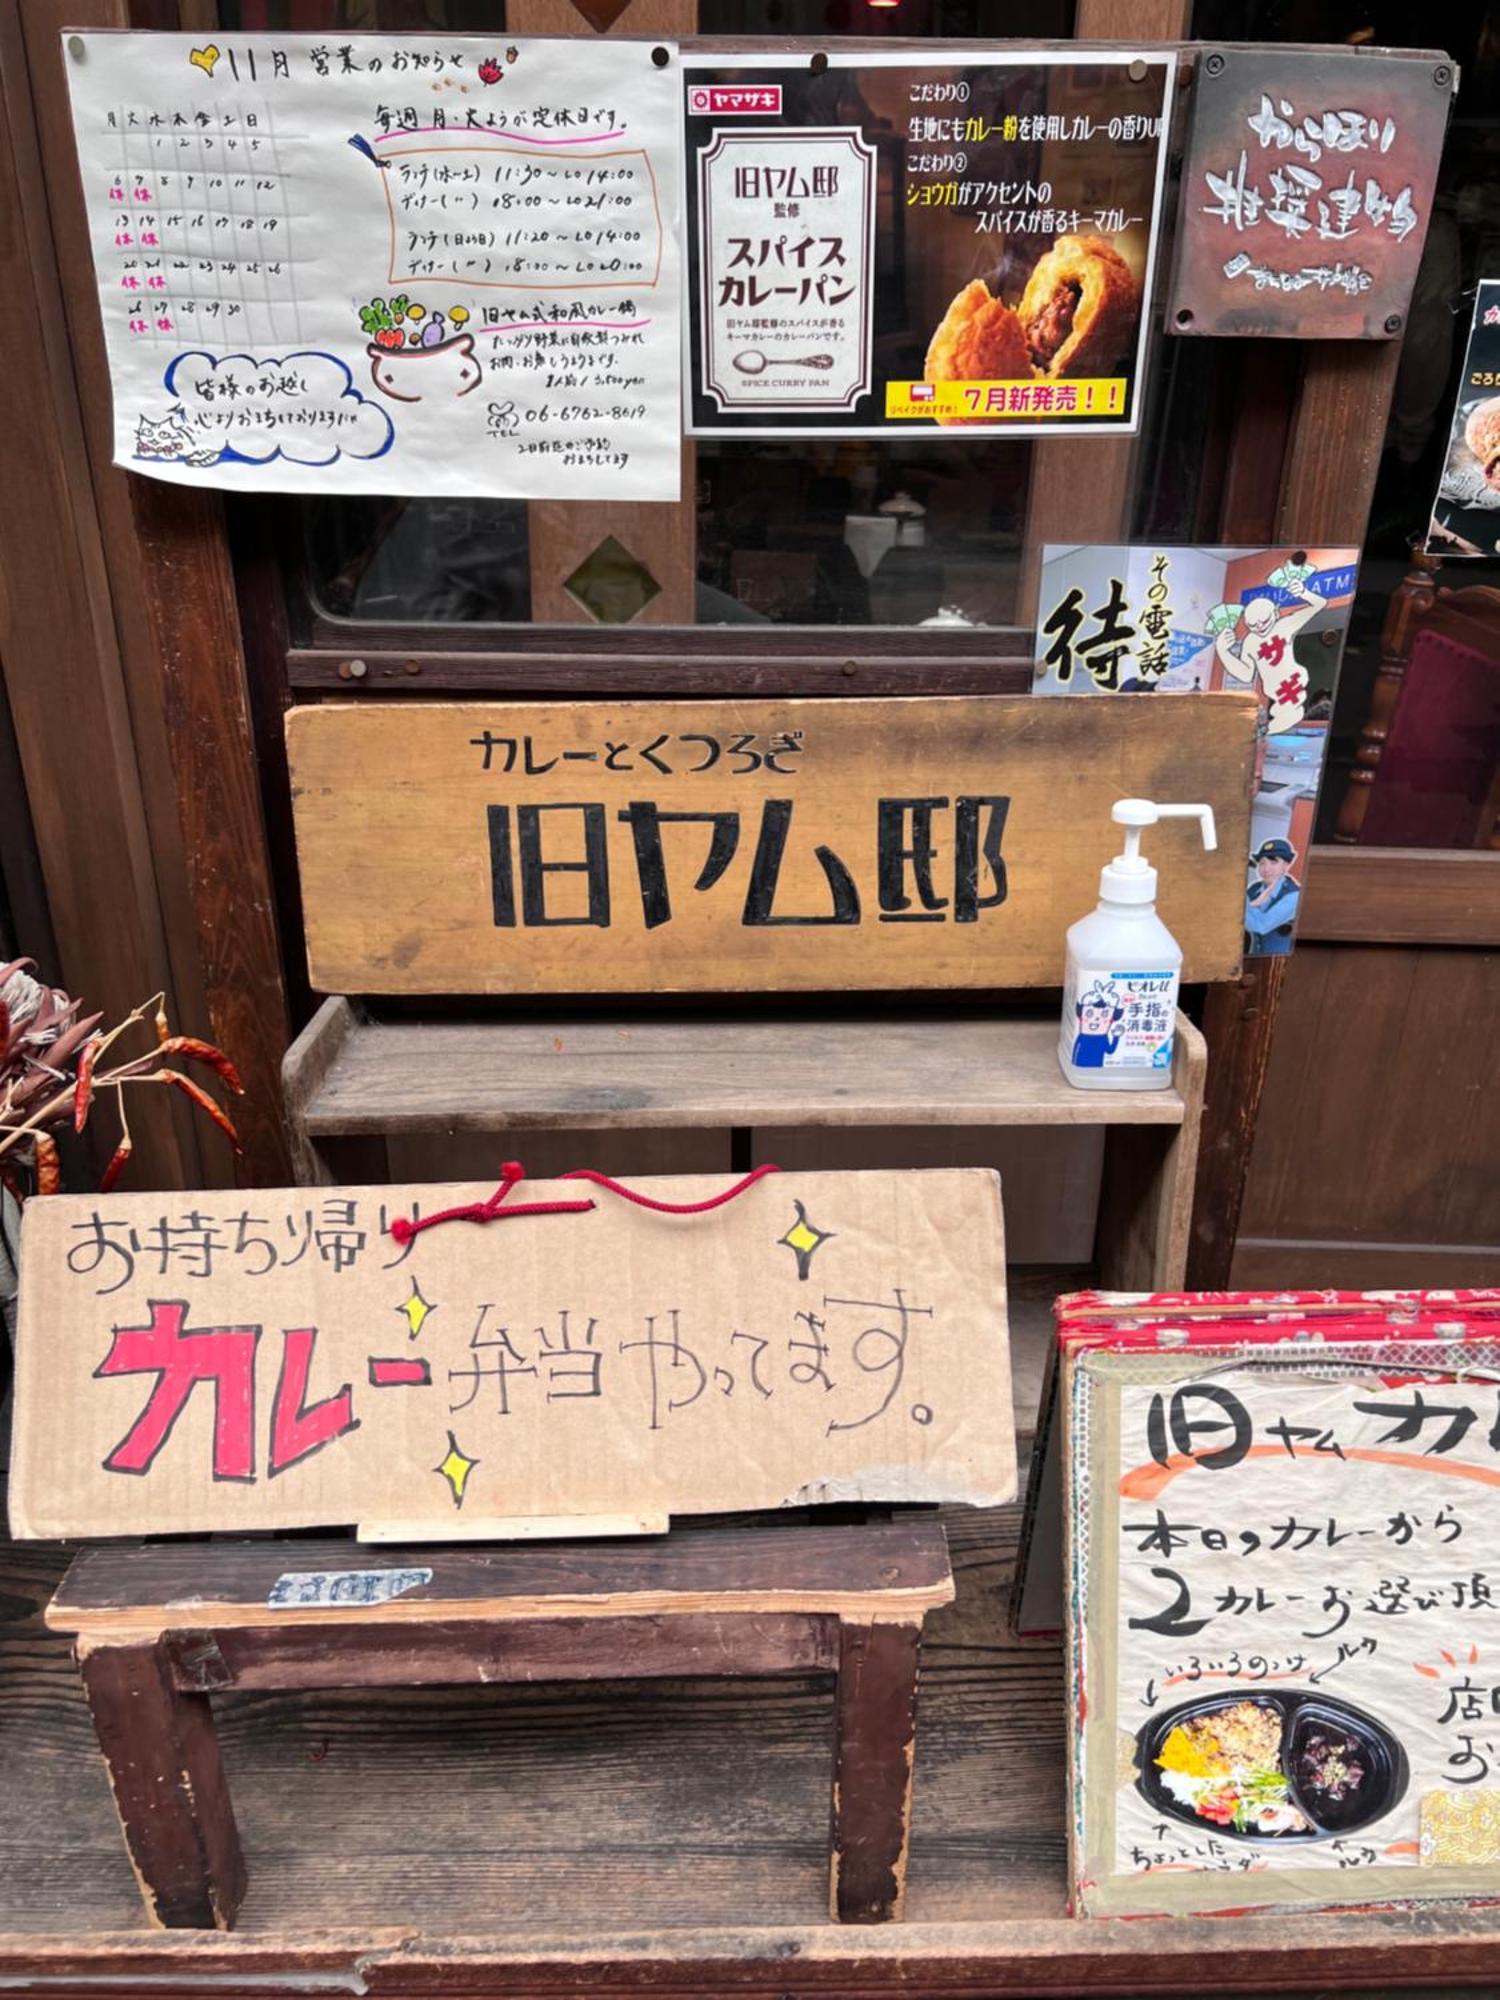 11月 営業のお知らせ
月 火 水 木 金 土 日
1 2 3 4 5
6 7 8 9 10 11 12
休 休
13 14 15 16 17 18 19
休 休
20 21 22 23 24 25 26
休 休
26 27 28 29 30
休 休
毎週 月・火ようが定休日です。
ランチ(水〜土) 11:30〜LO14:00
ディナー( 〃 ) 18:00〜LO21:00
ランチ(日のみ) 11:20〜LO14:00
ディナー( 〃 ) 18:00〜LO20:00
旧ヤム式和風カレー鍋
1人前 / 3,500yen
TEL 06-6762-8619
2日前迄のご予約
おまちしてます
皆様のお越し
心よりおまちしております
ヤマザキ
旧ヤム邸
監修
スパイス
カレーパン
旧ヤム邸監修のスパイスが香る
キーマカレーのカレーパンです。
SPICE CURRY PAN
こだわり①
生地にもカレー粉を使用しカレーの香りUP
こだわり②
ショウガがアクセントの
スパイスが香るキーマカレー
リベイクがおすすめ!
7月新発売!!
からほり
推奨建物
その電話
待
ATM
サギ
カレーとくつろぎ
旧ヤム邸
ビオレu
手指の
消毒液
お持ち帰り
カレー弁当やってます。
旧ヤムカ
本日のカレーから
2カレーお選び頂
いろいろのっけ
ルウ
店
お
ちょっとした
ルウ